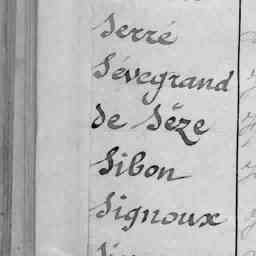 Serré
Sévegrand
de Sèze
Sibon
Signoux